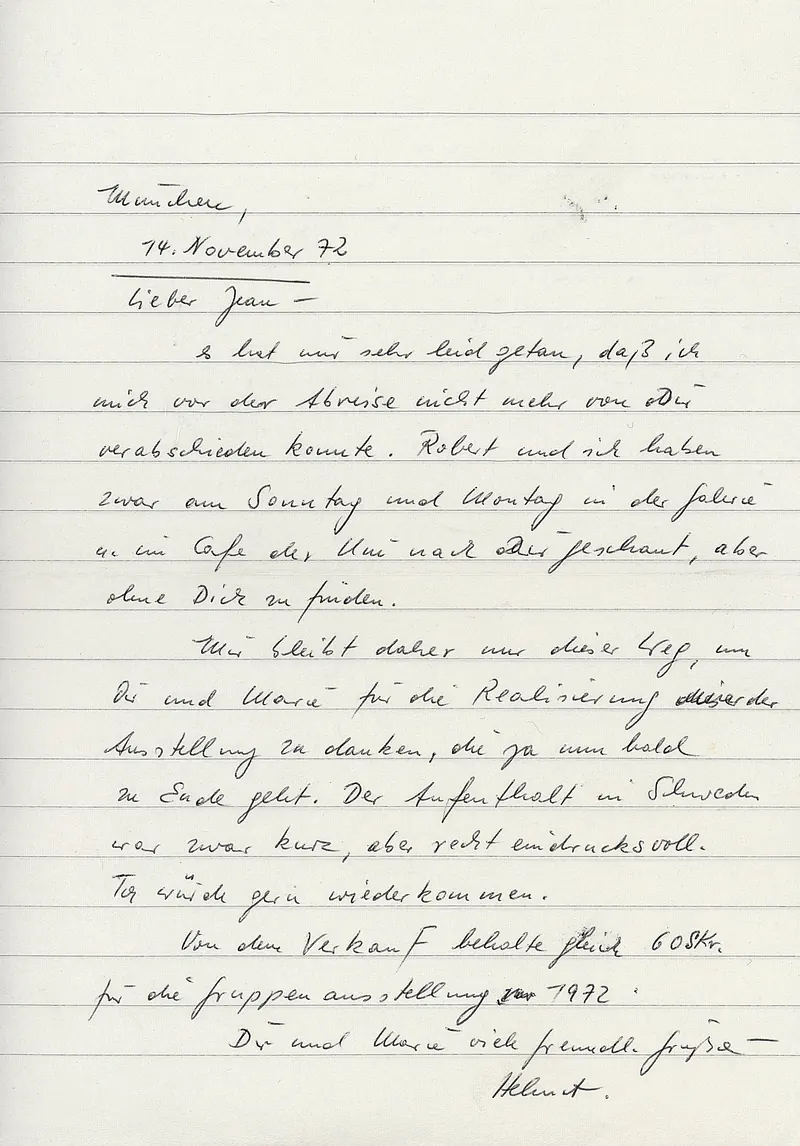 München,
14. November 72
Lieber Jean —
es hat mir sehr leid getan, daß ich
mich vor der Abreise nicht mehr von Dir
verabschieden konnte. Robert und ich haben
zwar am Sonntag und Montag in der Galerie
u. im Cafe der Uni nach Dir geschaut, aber
ohne Dich zu finden.
Mir bleibt daher nur dieser Weg, um
Dir und Marie für die Realisierung der
Ausstellung zu danken, die ja nun bald
zu Ende geht. Der Aufenthalt in Schweden
war zwar kurz, aber recht eindrucksvoll.
Ich würde gern wiederkommen.
Von dem Verkauf behalte gleich 60 SKr.
für die Gruppenausstellung 1972.
Dir und Marie viele freundl. Grüße —
Helmut.